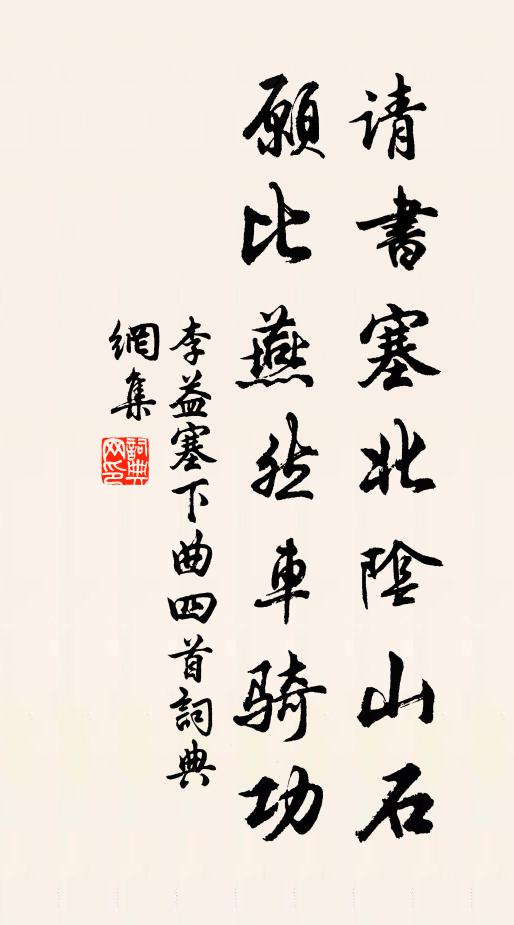 请書塞北陰山石
願比燕然車騎功
李益塞下曲四首詞典
網集
詞典網印